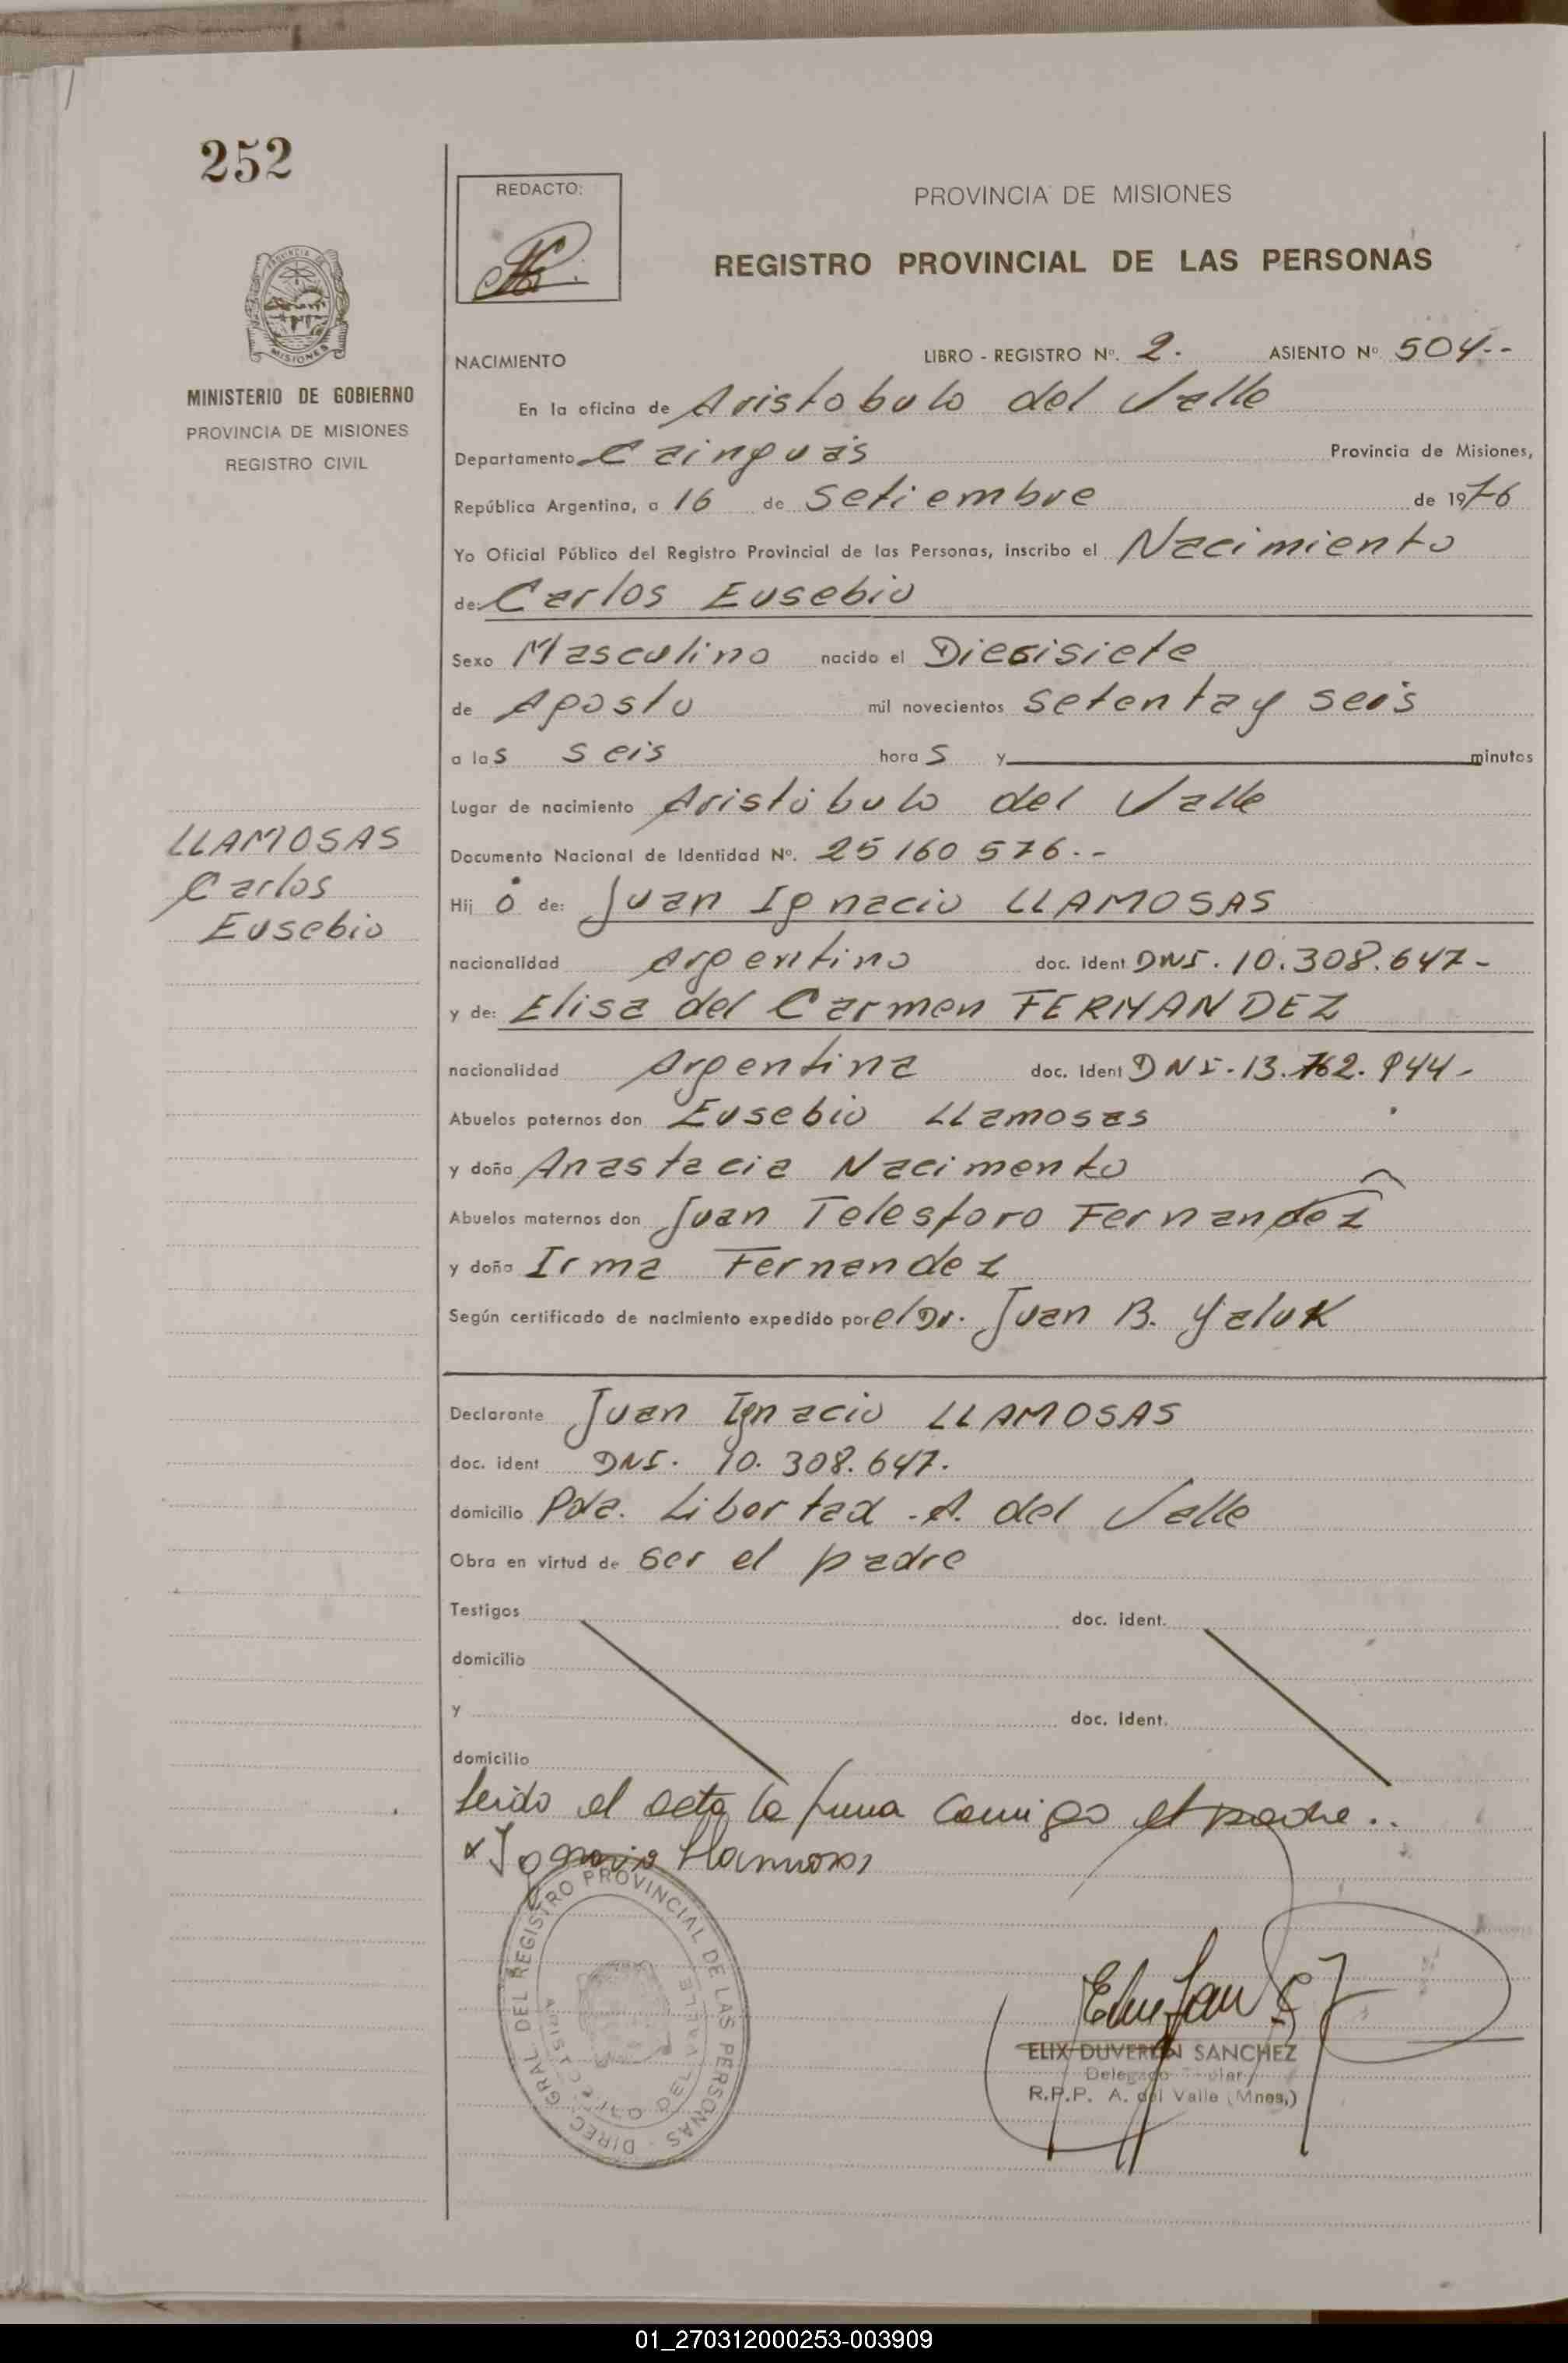 252
REDACTO:
PROVINCIA DE MISIONES
REGISTRO PROVINCIAL DE LAS PERSONAS
MISIONES
MINISTERIO DE GOBIERNO
PROVINCIA DE MISIONES
REGISTRO CIVIL
NACIMIENTO LIBRO - REGISTRO Nº. 2. ASIENTO Nº 504--
En la oficina de Aristobulo del Valle
Departamento Cainguás Provincia de Misiones,
República Argentina, a 16 de Setiembre de 1976
Yo Oficial Público del Registro Provincial de las Personas, inscribo el Nacimiento
de: Carlos Eusebio
Sexo Masculino nacido el Diesisiete
de Agosto mil novecientos setenta y seis
a las seis horas y minutos
Lugar de nacimiento Aristóbulo del Valle
LLAMOSAS
Carlos
Eusebio
Documento Nacional de Identidad Nº. 25 160 576.--
Hijo de: Juan Ignacio LLAMOSAS
nacionalidad Argentino doc. ident DNI. 10.308.647-
y de: Elisa del Carmen FERNANDEZ
nacionalidad Argentina doc. ident DNI. 13.762.944-
Abuelos paternos don Eusebio Llamosas
y doña Anastacia Nacimento
Abuelos maternos don Juan Telesforo Fernandez
y doña Irma Fernandez
Según certificado de nacimiento expedido por el Dr. Juan B. Yaluk
Declarante Juan Ignacio LLAMOSAS
doc. ident DNI. 10.308.647.
domicilio Pda. Libertad - A. del Valle
Obra en virtud de ser el padre
Testigos doc. ident.
domicilio
y doc. ident.
domicilio
Leido el acta la firma comigo el padre..
x Ignacio Llamosas
DIREC. GRAL DEL REGISTRO PROVINCIAL DE LAS PERSONAS
ARISTOBULO DEL VALLE
ELIX DUVERLIN SANCHEZ
Delegado Titular
R.P.P. A. del Valle (Mnes,)
01_270312000253-003909